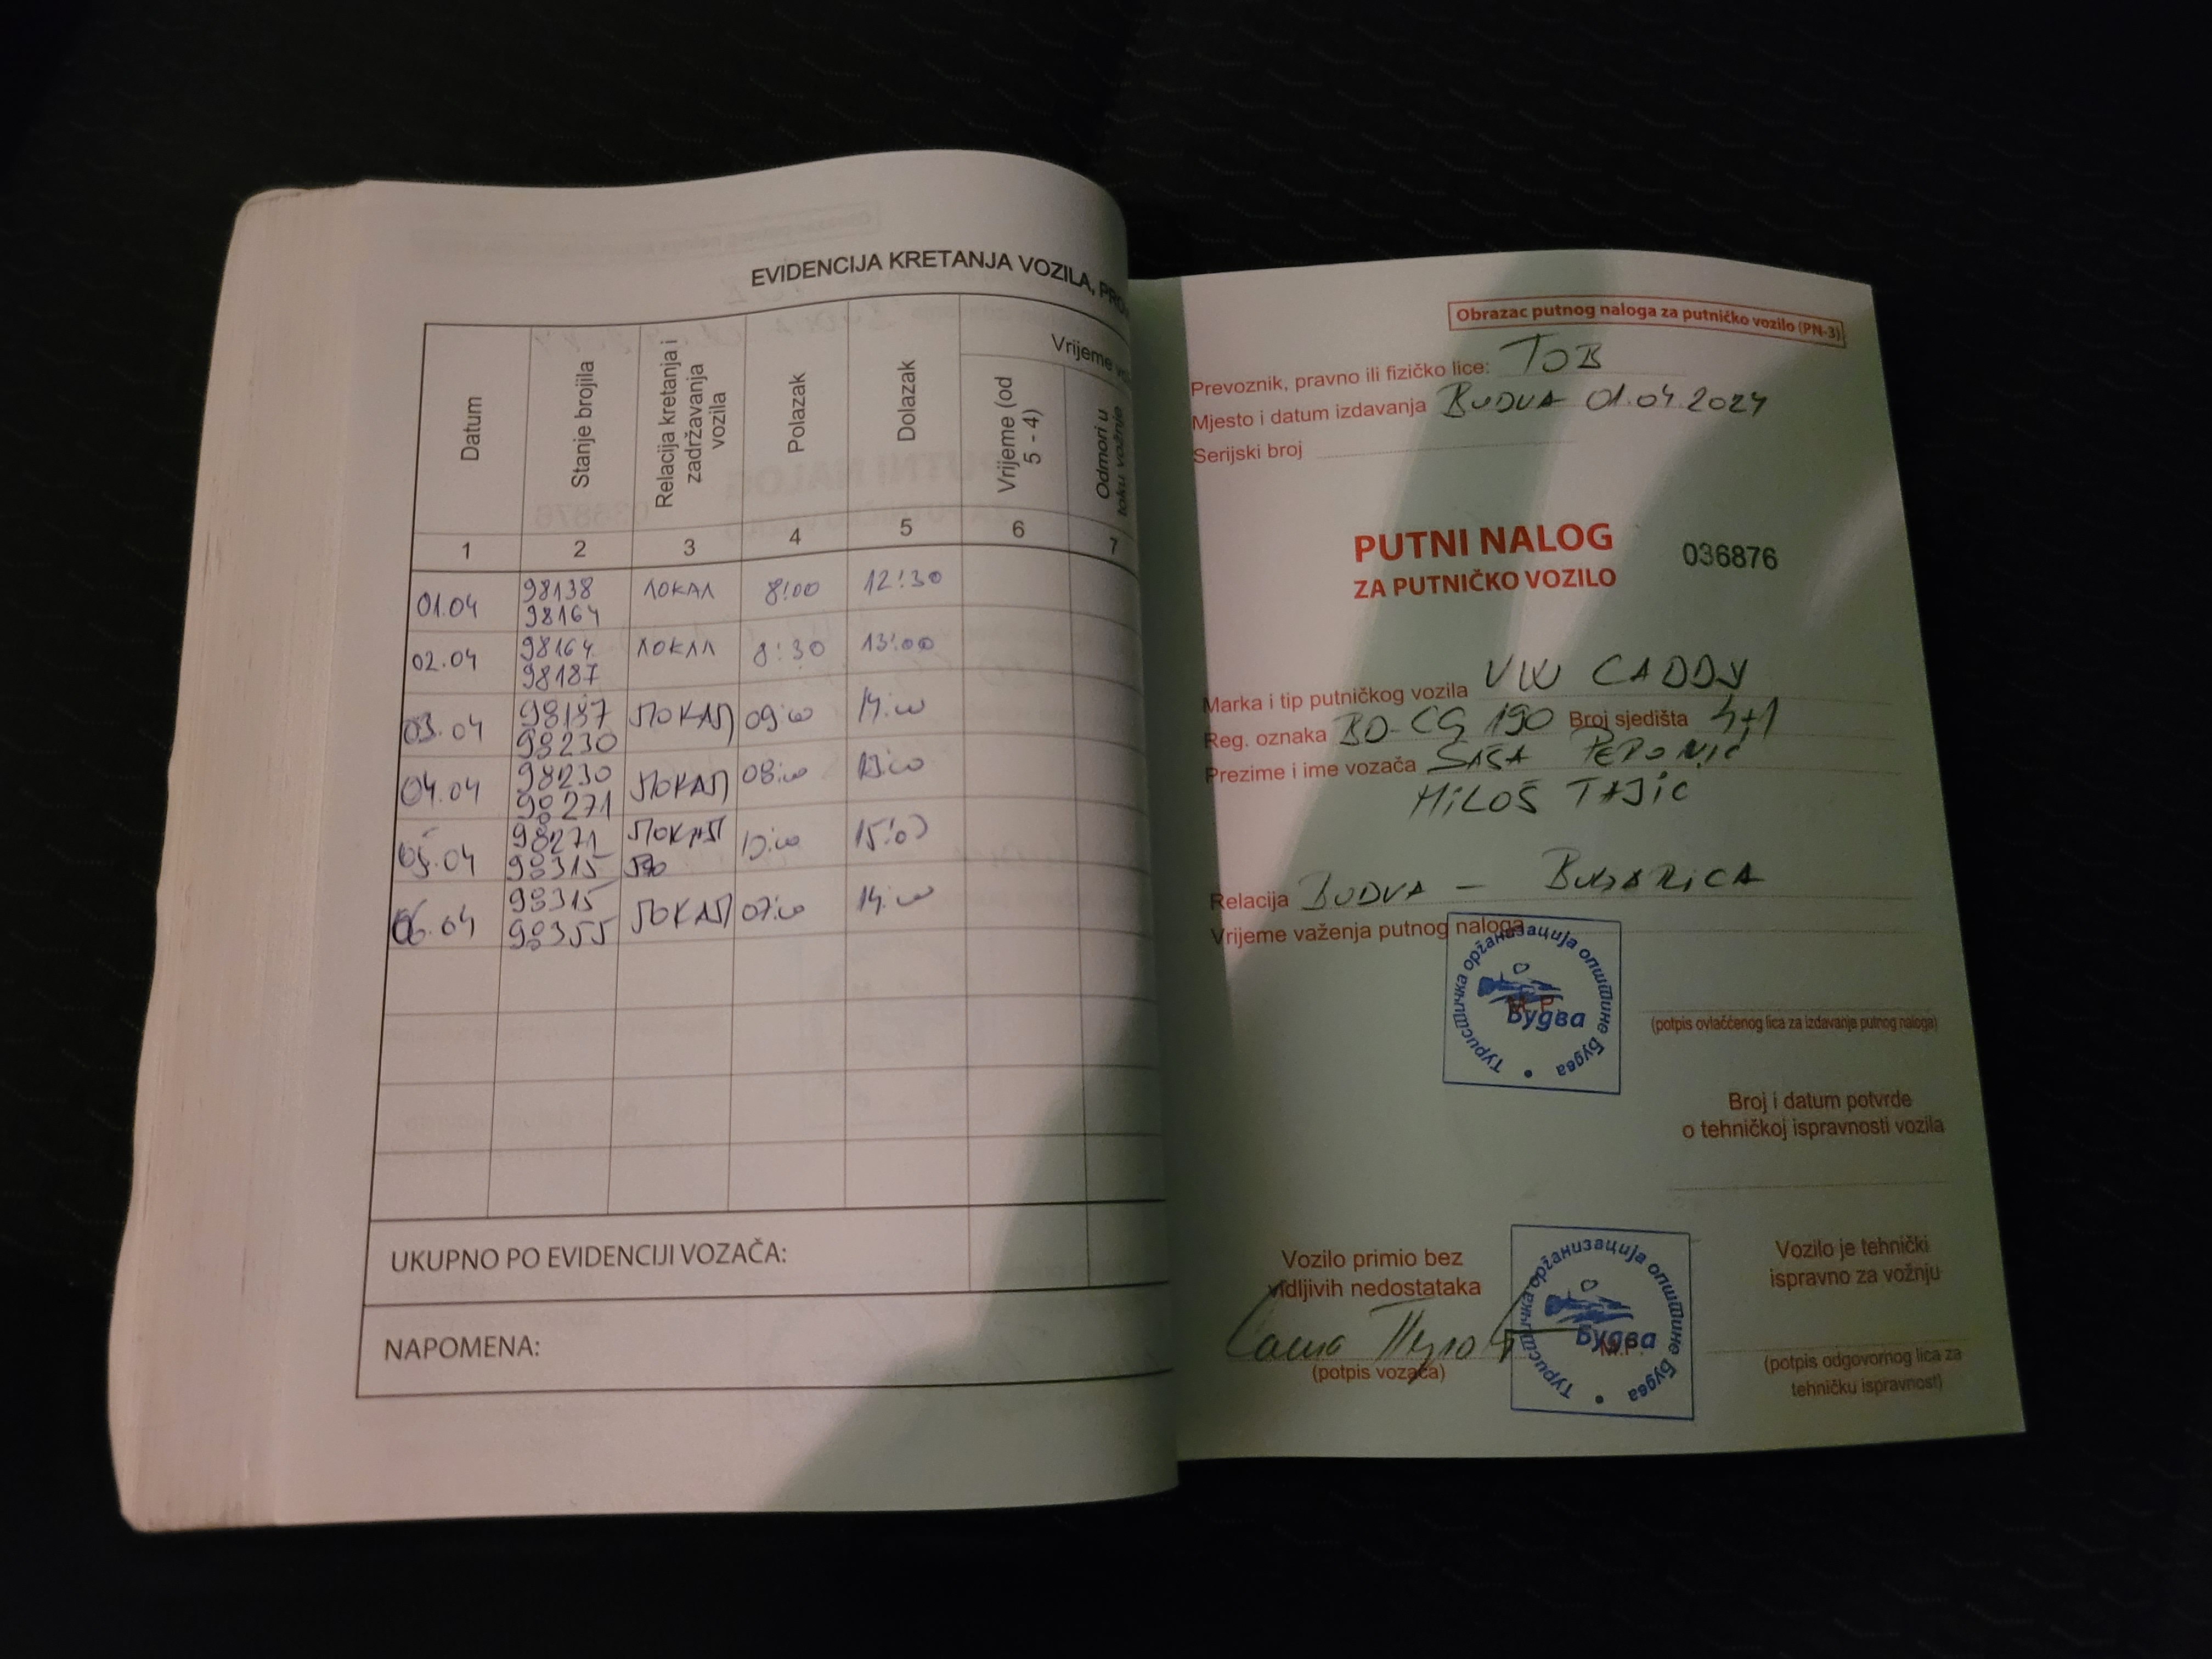 EVIDENCIJA KRETANJA VOZILA,
Datum
Stanje brojila
Relacija kretanja i zadržavanja vozila
Polazak
Dolazak
Vrijeme
Vrijeme (od 5 - 4)
Odmori u toku vožnje
1 2 3 4 5 6 7
01.04 98138 ЛОКАЛ 8:00 12:30
98164
02.04 98164 ЛОКАЛ 8:30 13:00
98187
03.04 98187 ЛОКАЛ 09:00 14:00
98230
04.04 98230 ЛОКАЛ 08:00 13:00
98271
05.04 98271 ЛОКАЛ 10:00 15:00
98315
06.04 98315 ЛОКАЛ 07:00 14:00
98355
UKUPNO PO EVIDENCIJI VOZAČA:
NAPOMENA:
Obrazac putnog naloga za putničko vozilo (PN-3)
Prevoznik, pravno ili fizičko lice: TOB
Mjesto i datum izdavanja BUDVA 01.04.2024
Serijski broj
PUTNI NALOG 036876
ZA PUTNIČKO VOZILO
Marka i tip putničkog vozila VW CADDY
Reg. oznaka BD-CG 190 Broj sjedišta 4+1
Prezime i ime vozača SAŠA
MILOŠ TAJIĆ
Relacija BUDVA - BULJARICA
Vrijeme važenja putnog naloga
Туристичка организација општине Будва
Будва
M.P.
(potpis ovlaćčenog lica za izdavanje putnog naloga)
Broj i datum potvrde
o tehničkoj ispravnosti vozila
Vozilo primio bez
vidljivih nedostataka
(potpis vozača)
Туристичка организација општине Будва
Будва
M.P.
Vozilo je tehnički
ispravno za vožnju
(potpis odgovornog lica za
tehničku ispravnost)